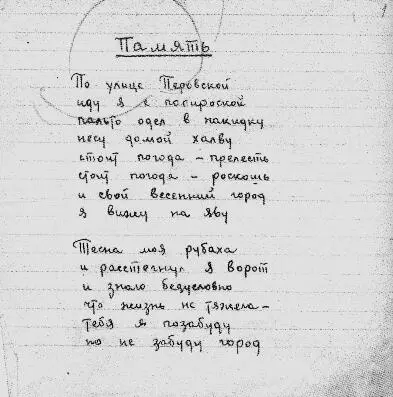 Память
По улице Перовской
иду я с папироской
пальто одел в накидку
несу домой халву
стоит погода – прелесть
стоит погода – роскошь
и свой весенний город
я вижу на яву
Тесна моя рубаха
и расстегнул я ворот
и знаю бедусловно
что жизнь не тяжела –
тебя я позабуду
но не забуду город